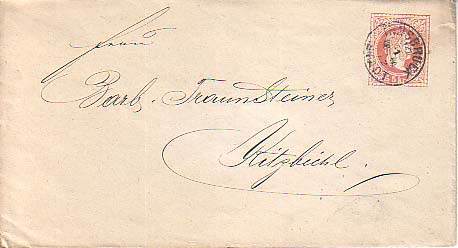 Frau
Barb. Traunsteiner,
Kitzbichl.